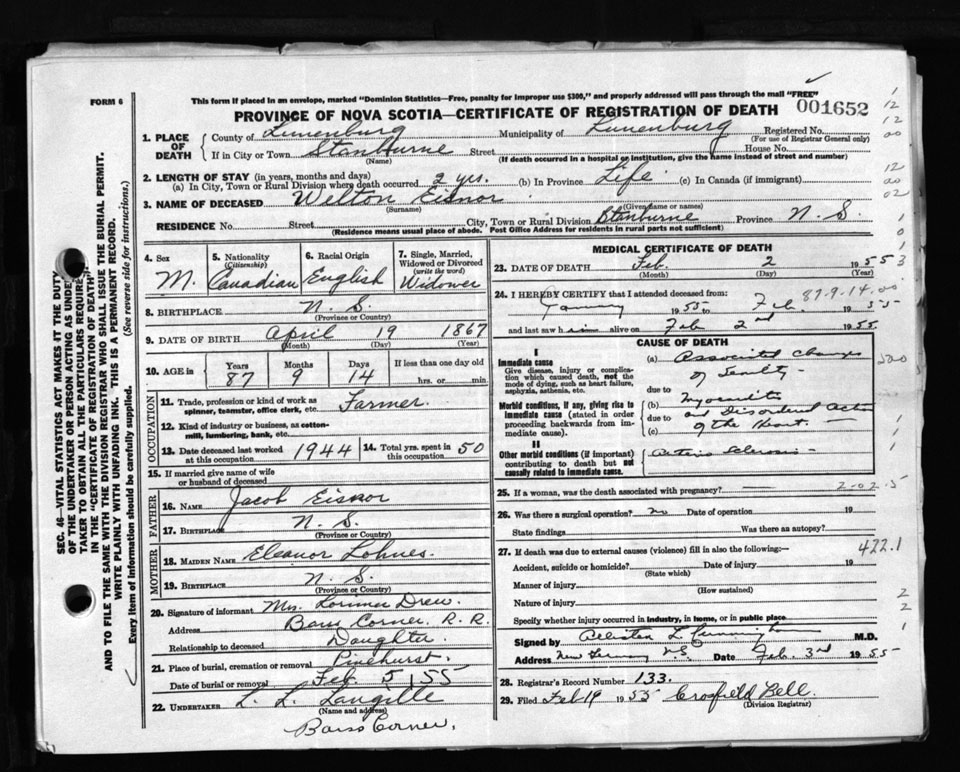 FORM 6
This form if placed in an envelope, marked "Dominion Statistics—Free, penalty for improper use $300," and properly addressed will pass through the mail "FREE"
PROVINCE OF NOVA SCOTIA—CERTIFICATE OF REGISTRATION OF DEATH
001652
1. PLACE OF DEATH
County of Lunenburg Municipality of Lunenburg Registered No.
(For use of Registrar General only)
If in City or Town Stanburne Street House No.
(Name) (If death occurred in a hospital or institution, give the name instead of street and number)
2. LENGTH OF STAY (in years, months and days)
(a) In City, Town or Rural Division where death occurred 2 yrs. (b) In Province Life (c) In Canada (if immigrant)
3. NAME OF DECEASED Welton Eisnor
(Surname) (Given name or names)
RESIDENCE No. Street City, Town or Rural Division Stanburne Province N. S.
(Residence means usual place of abode. Post Office Address for residents in rural parts not sufficient)
4. Sex 5. Nationality (Citizenship) 6. Racial Origin 7. Single, Married, Widowed or Divorced (write the word)
M. Canadian English Widower
8. BIRTHPLACE N. S.
(Province or Country)
9. DATE OF BIRTH April 19 1867
(Month) (Day) (Year)
10. AGE in Years Months Days If less than one day old
87 9 14 hrs. or min.
OCCUPATION
11. Trade, profession or kind of work as spinner, teamster, office clerk, etc. Farmer.
12. Kind of industry or business, as cotton-mill, lumbering, bank, etc.
13. Date deceased last worked at this occupation 1944 14. Total yrs. spent in this occupation 50
15. If married give name of wife or husband of deceased
FATHER
16. NAME Jacob Eisnor
17. BIRTHPLACE N. S.
(Province or Country)
MOTHER
18. MAIDEN NAME Eleanor Lohnes.
19. BIRTHPLACE N. S.
(Province or Country)
20. Signature of informant Mrs. Lorimer Drew
Address Barss Corner. R. R.
Relationship to deceased Daughter.
21. Place of burial, cremation or removal Pinehurst.
Date of burial or removal Feb. 5 | 55
22. UNDERTAKER L. L. Langille
(Name and address)
Barss Corner.
MEDICAL CERTIFICATE OF DEATH
23. DATE OF DEATH Feb. 2 1955
(Month) (Day) (Year)
87-9-14.00
24. I HEREBY CERTIFY that I attended deceased from:
January 1955 to Feb. 1955
and last saw him alive on Feb 2nd 1955
CAUSE OF DEATH
I
Immediate cause
Give disease, injury or complication which caused death, not the mode of dying, such as heart failure, asphyxia, asthenia, etc.
(a) Associated changes
of Senility
due to
Morbid conditions, if any, giving rise to immediate cause (stated in order proceeding backwards from immediate cause).
(b) Myocarditis
due to and Disordered Action
(c) of the Heart.
II
Other morbid conditions (if important) contributing to death but not causally related to immediate cause.
Arterio Sclerosis
25. If a woman, was the death associated with pregnancy?
2-02.5
26. Was there a surgical operation? no Date of operation 19
State findings Was there an autopsy?
27. If death was due to external causes (violence) fill in also the following:—
422.1
Accident, suicide or homicide? Date of injury 19
(State which)
Manner of injury
(How sustained)
Nature of injury
Specify whether injury occurred in industry, in home, or in public place
Signed by M.D.
Address New Germany N.S. Date Feb. 3rd 1955
28. Registrar's Record Number 133.
29. Filed Feb 19 1955 Crofield Bell.
(Division Registrar)
SEC. 46—VITAL STATISTICS ACT MAKES IT THE DUTY
OF THE UNDERTAKER OR PERSON ACTING AS UNDERTAKER TO OBTAIN ALL THE PARTICULARS REQUIRED
IN THE "CERTIFICATE OF REGISTRATION OF DEATH"
AND TO FILE THE SAME WITH THE DIVISION REGISTRAR WHO SHALL ISSUE THE BURIAL PERMIT.
WRITE PLAINLY WITH UNFADING INK. THIS IS A PERMANENT RECORD.
Every item of Information should be carefully supplied. (See reverse side for instructions.)